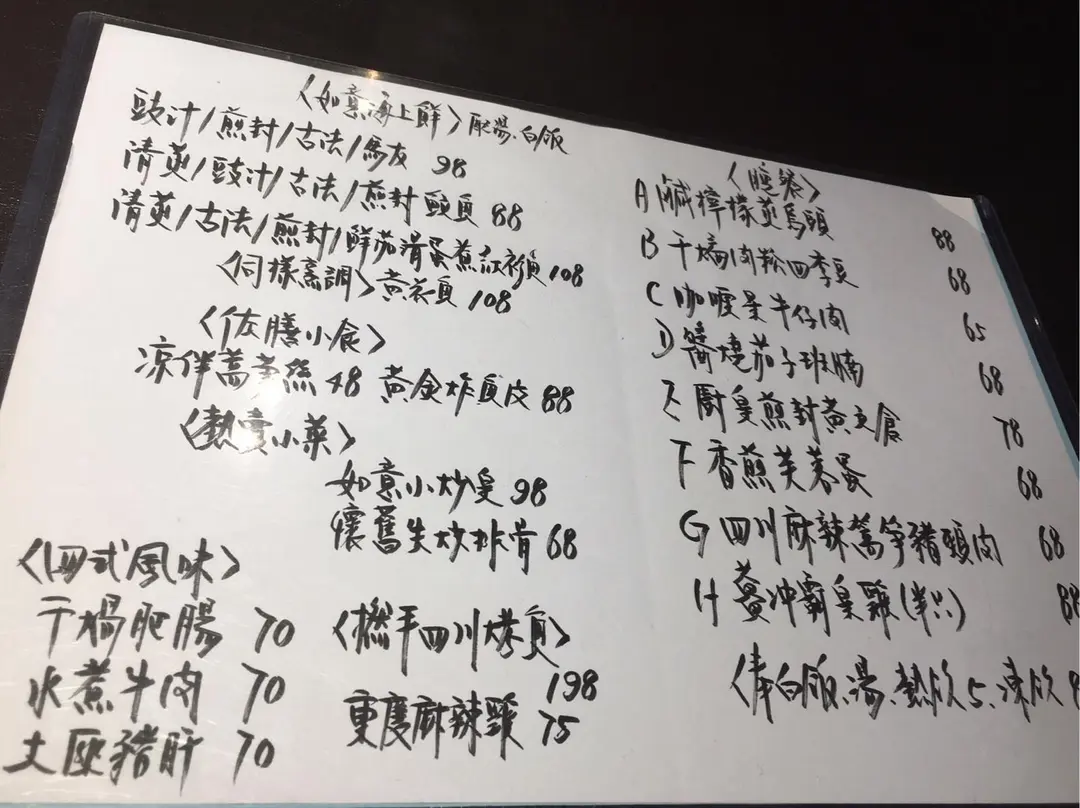 〈如意海上鮮〉配湯、白飯
豉汁/煎封/古法/馬友 98
清蒸/豉汁/古法/煎封鯇魚 88
清蒸/古法/煎封/鮮茄滑蛋煮紅衫魚 108
〈同樣烹調〉黃衣魚 108
〈佐膳小食〉
涼伴萵筍絲 48 黃金炸魚皮 88
〈熱賣小菜〉
如意小炒皇 98
懷舊生炒排骨 68
〈四式風味〉
干煸肥腸 70
水煮牛肉 70
土匪豬肝 70
〈撚手四川烤魚〉
198
重慶麻辣雞 75
〈晚餐〉
A 鹹檸檬蒸烏頭 88
B 干煸肉鬆四季豆 68
C 咖喱 牛仔肉 65
D 醬燒茄子班腩 68
E 廚皇煎封黃立鯧 78
F 香煎芙蓉蛋 68
G 四川麻辣萵筍豬頭肉 68
H 薑沖霸皇雞(半只) 88
〈奉白飯、湯、熱飲5、凍飲